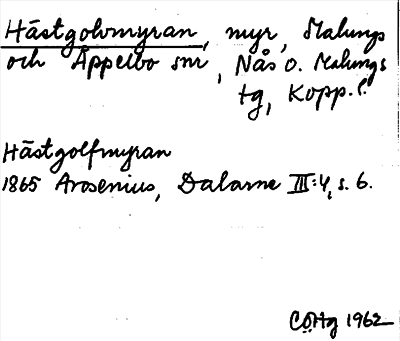 Hästgolvmyran, myr, Malungs
och Äppelbo snr, Nås o. Malungs
tg, Kopp. l.
Hästgolfmyran
1865 Arosenius, Dalarne III:4, s. 6.
COHg 1962